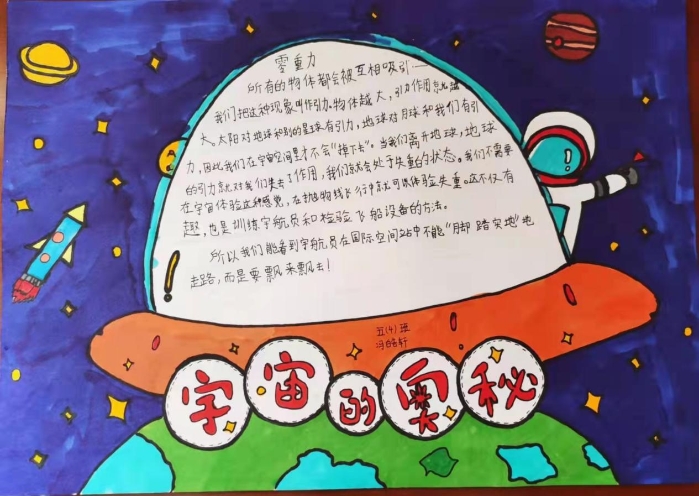 零重力
所有的物体都会被互相吸引——
我们把这种现象叫作引力。物体越大,引力作用就越
大。太阳对地球和别的星球有引力,地球对月球和我们有引
力,因此我们在宇宙空间里才不会“掉下去”。当我们离开地球,地球
的引力就对我们失去了作用,我们就会处于失重的状态。我们不需要
在宇宙体验这种感觉,在抛物线飞行中就可以体验失重。这不仅有
趣,也是训练宇航员和检验飞船设备的方法。
所以我们能看到宇航员在国际空间站中不能“脚踏实地”地
走路,而是要飘来飘去!
五(4)班
冯皓轩
宇宙的奥秘